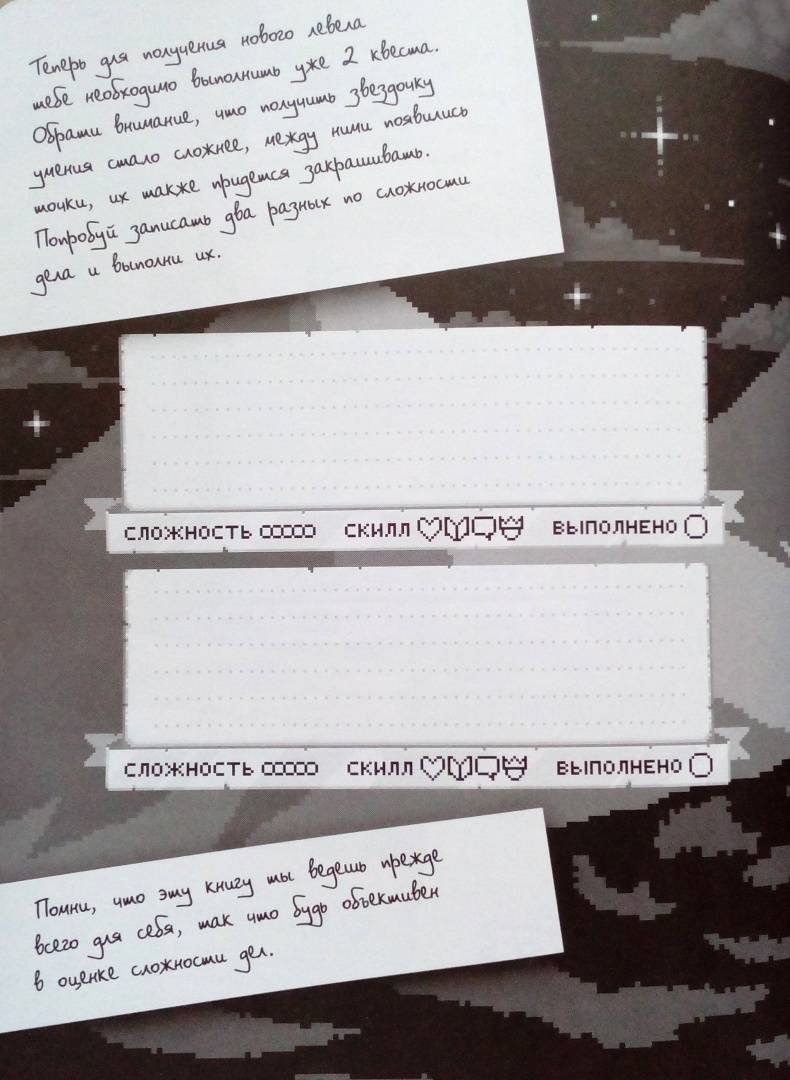 Теперь для получения нового левела
тебе необходимо выполнить уже 2 квеста.
Обрати внимание, что получить звездочку
умения стало сложнее, между ними появились
точки, их также придется закрашивать.
Попробуй записать два разных по сложности
дела и выполни их.
СЛОЖНОСТЬ СКИЛЛ ВЫПОЛНЕНО
СЛОЖНОСТЬ СКИЛЛ ВЫПОЛНЕНО
Помни, что эту книгу ты ведешь прежде
всего для себя, так что будь объективен
в оценке сложности дел.